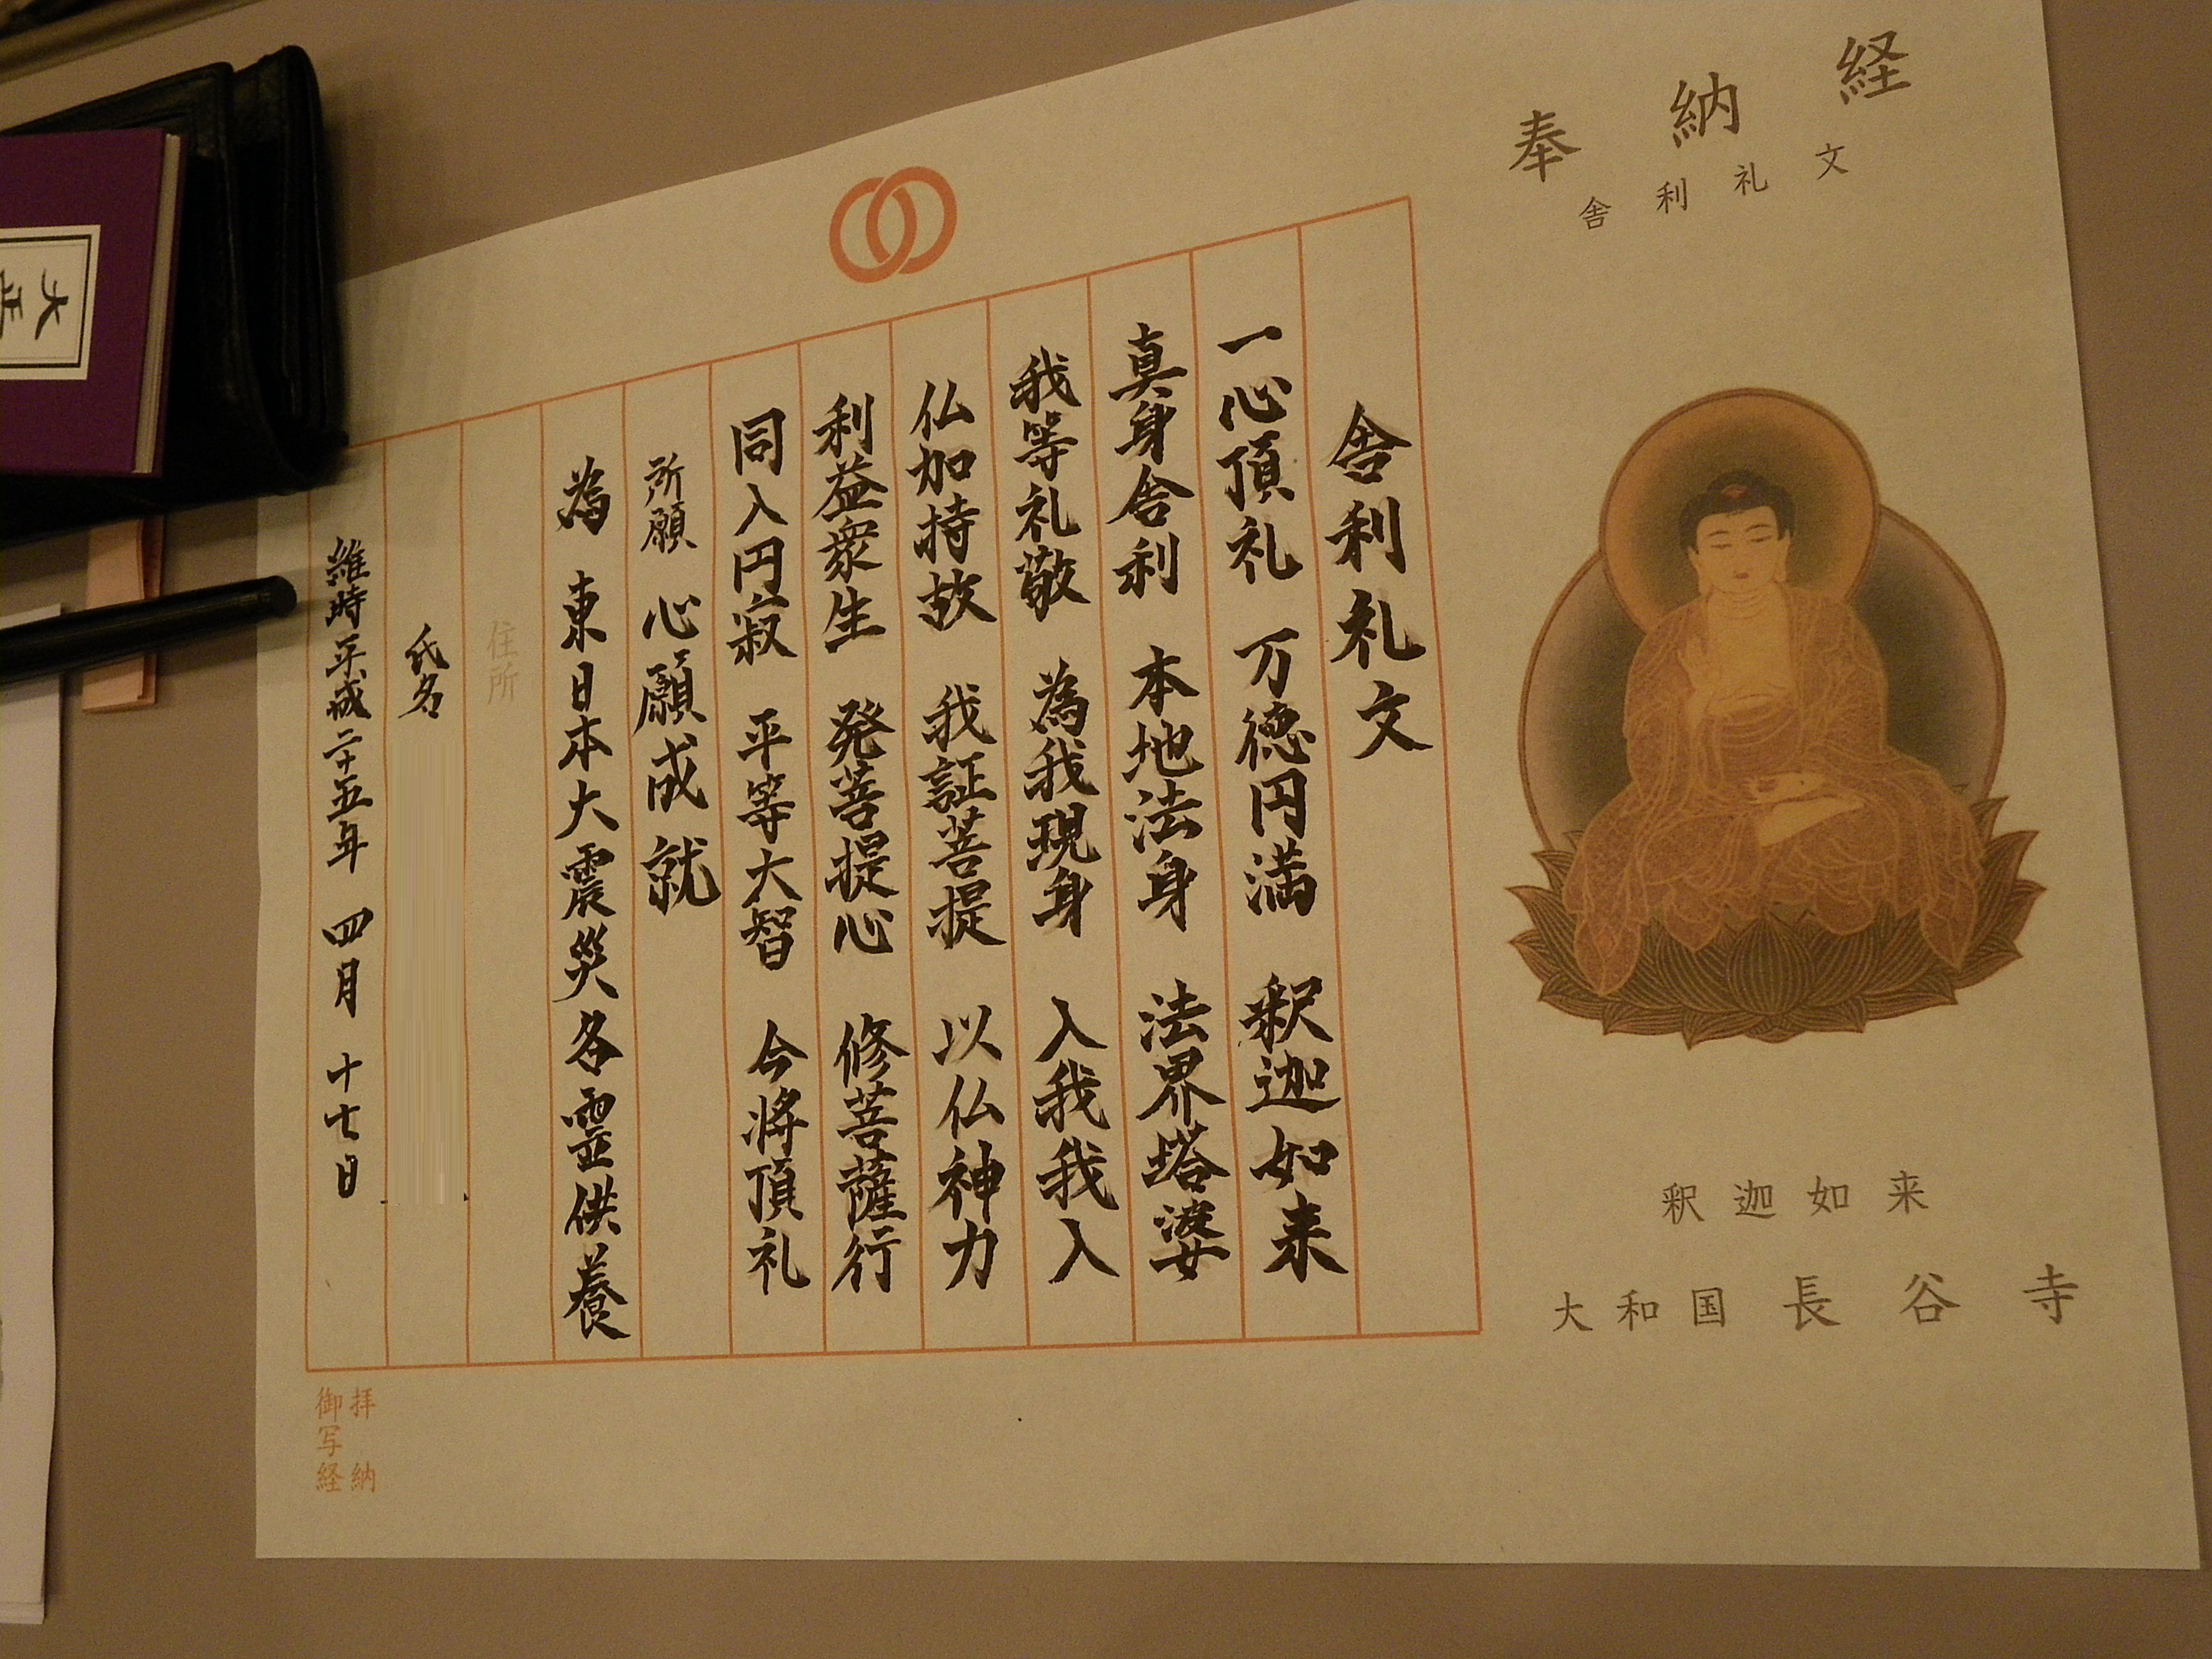 奉納経
舎利礼文
釈迦如来
大和国 長谷寺
舎利礼文
一心頂礼 万徳円満 釈迦如来
真身舎利 本地法身 法界塔婆
我等礼敬 為我現身 入我我入
仏加持故 我証菩提 以仏神力
利益衆生 発菩提心 修菩薩行
同入円寂 平等大智 今将頂礼
所願 心願成就
為 東日本大震災各霊供養
住所
氏名
維時平成二十五年 四月 十七日
拝納
御写経
大正